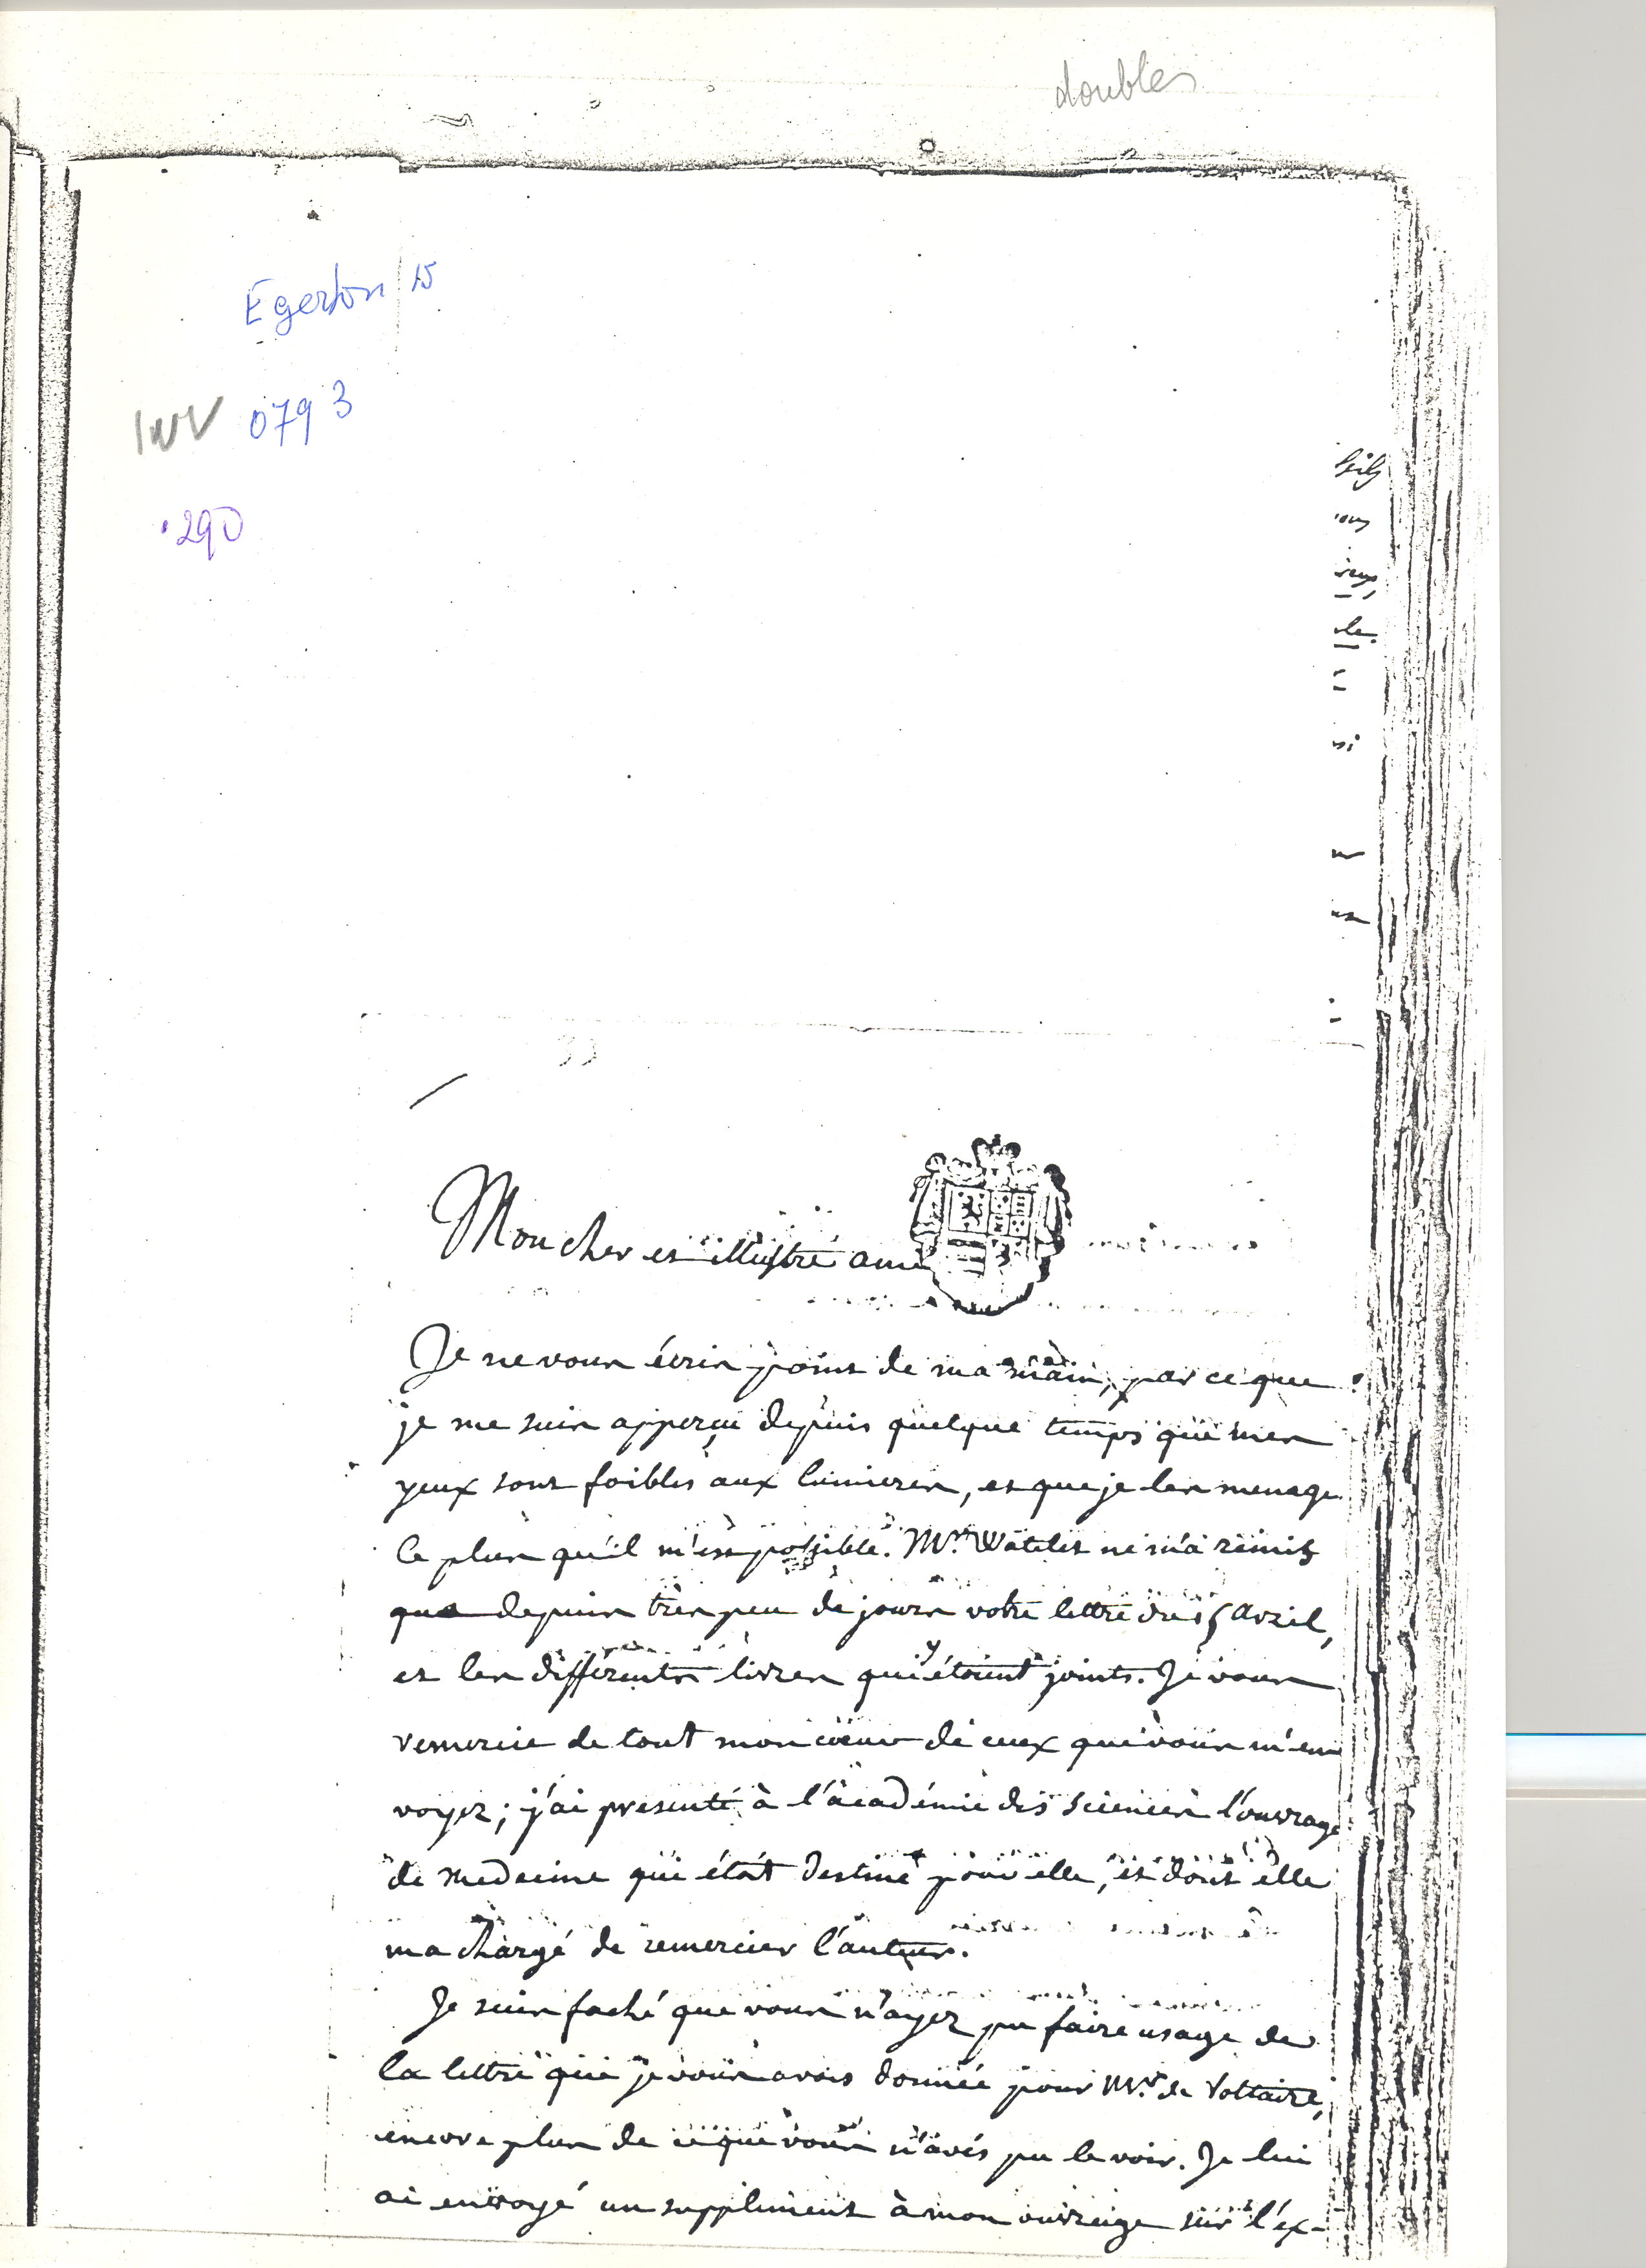 doubles
Egerton 15
INV 0793
290
Mon cher et illustre ami
Je ne vous écris point de ma main, par ce que
je me suis apperçu depuis quelque temps que mes
yeux sont foibles aux lumieres, et que je les menage
le plus qu'il m'est possible. Mr. Watelet ne m'a remis
que depuis très peu de jours votre lettre du 15 avril,
et les différents livres qui y étoient joints. Je vous
remercie de tout mon cœur de ceux que vous m'en
voyez; j'ai presenté à l'académie des sciences l'ouvrage
de medecine qui étoit destiné pour elle, et dont elle
m a chargé de remercier l'auteur.
Je suis faché que vous n'ayez pu faire usage de
la lettre que je vous avois donnée pour Mr. de Voltaire,
encore plus de ce que vous n'avés pu le voir. Je lui
ai envoyé un supplement à mon ouvrage sur l'ex-